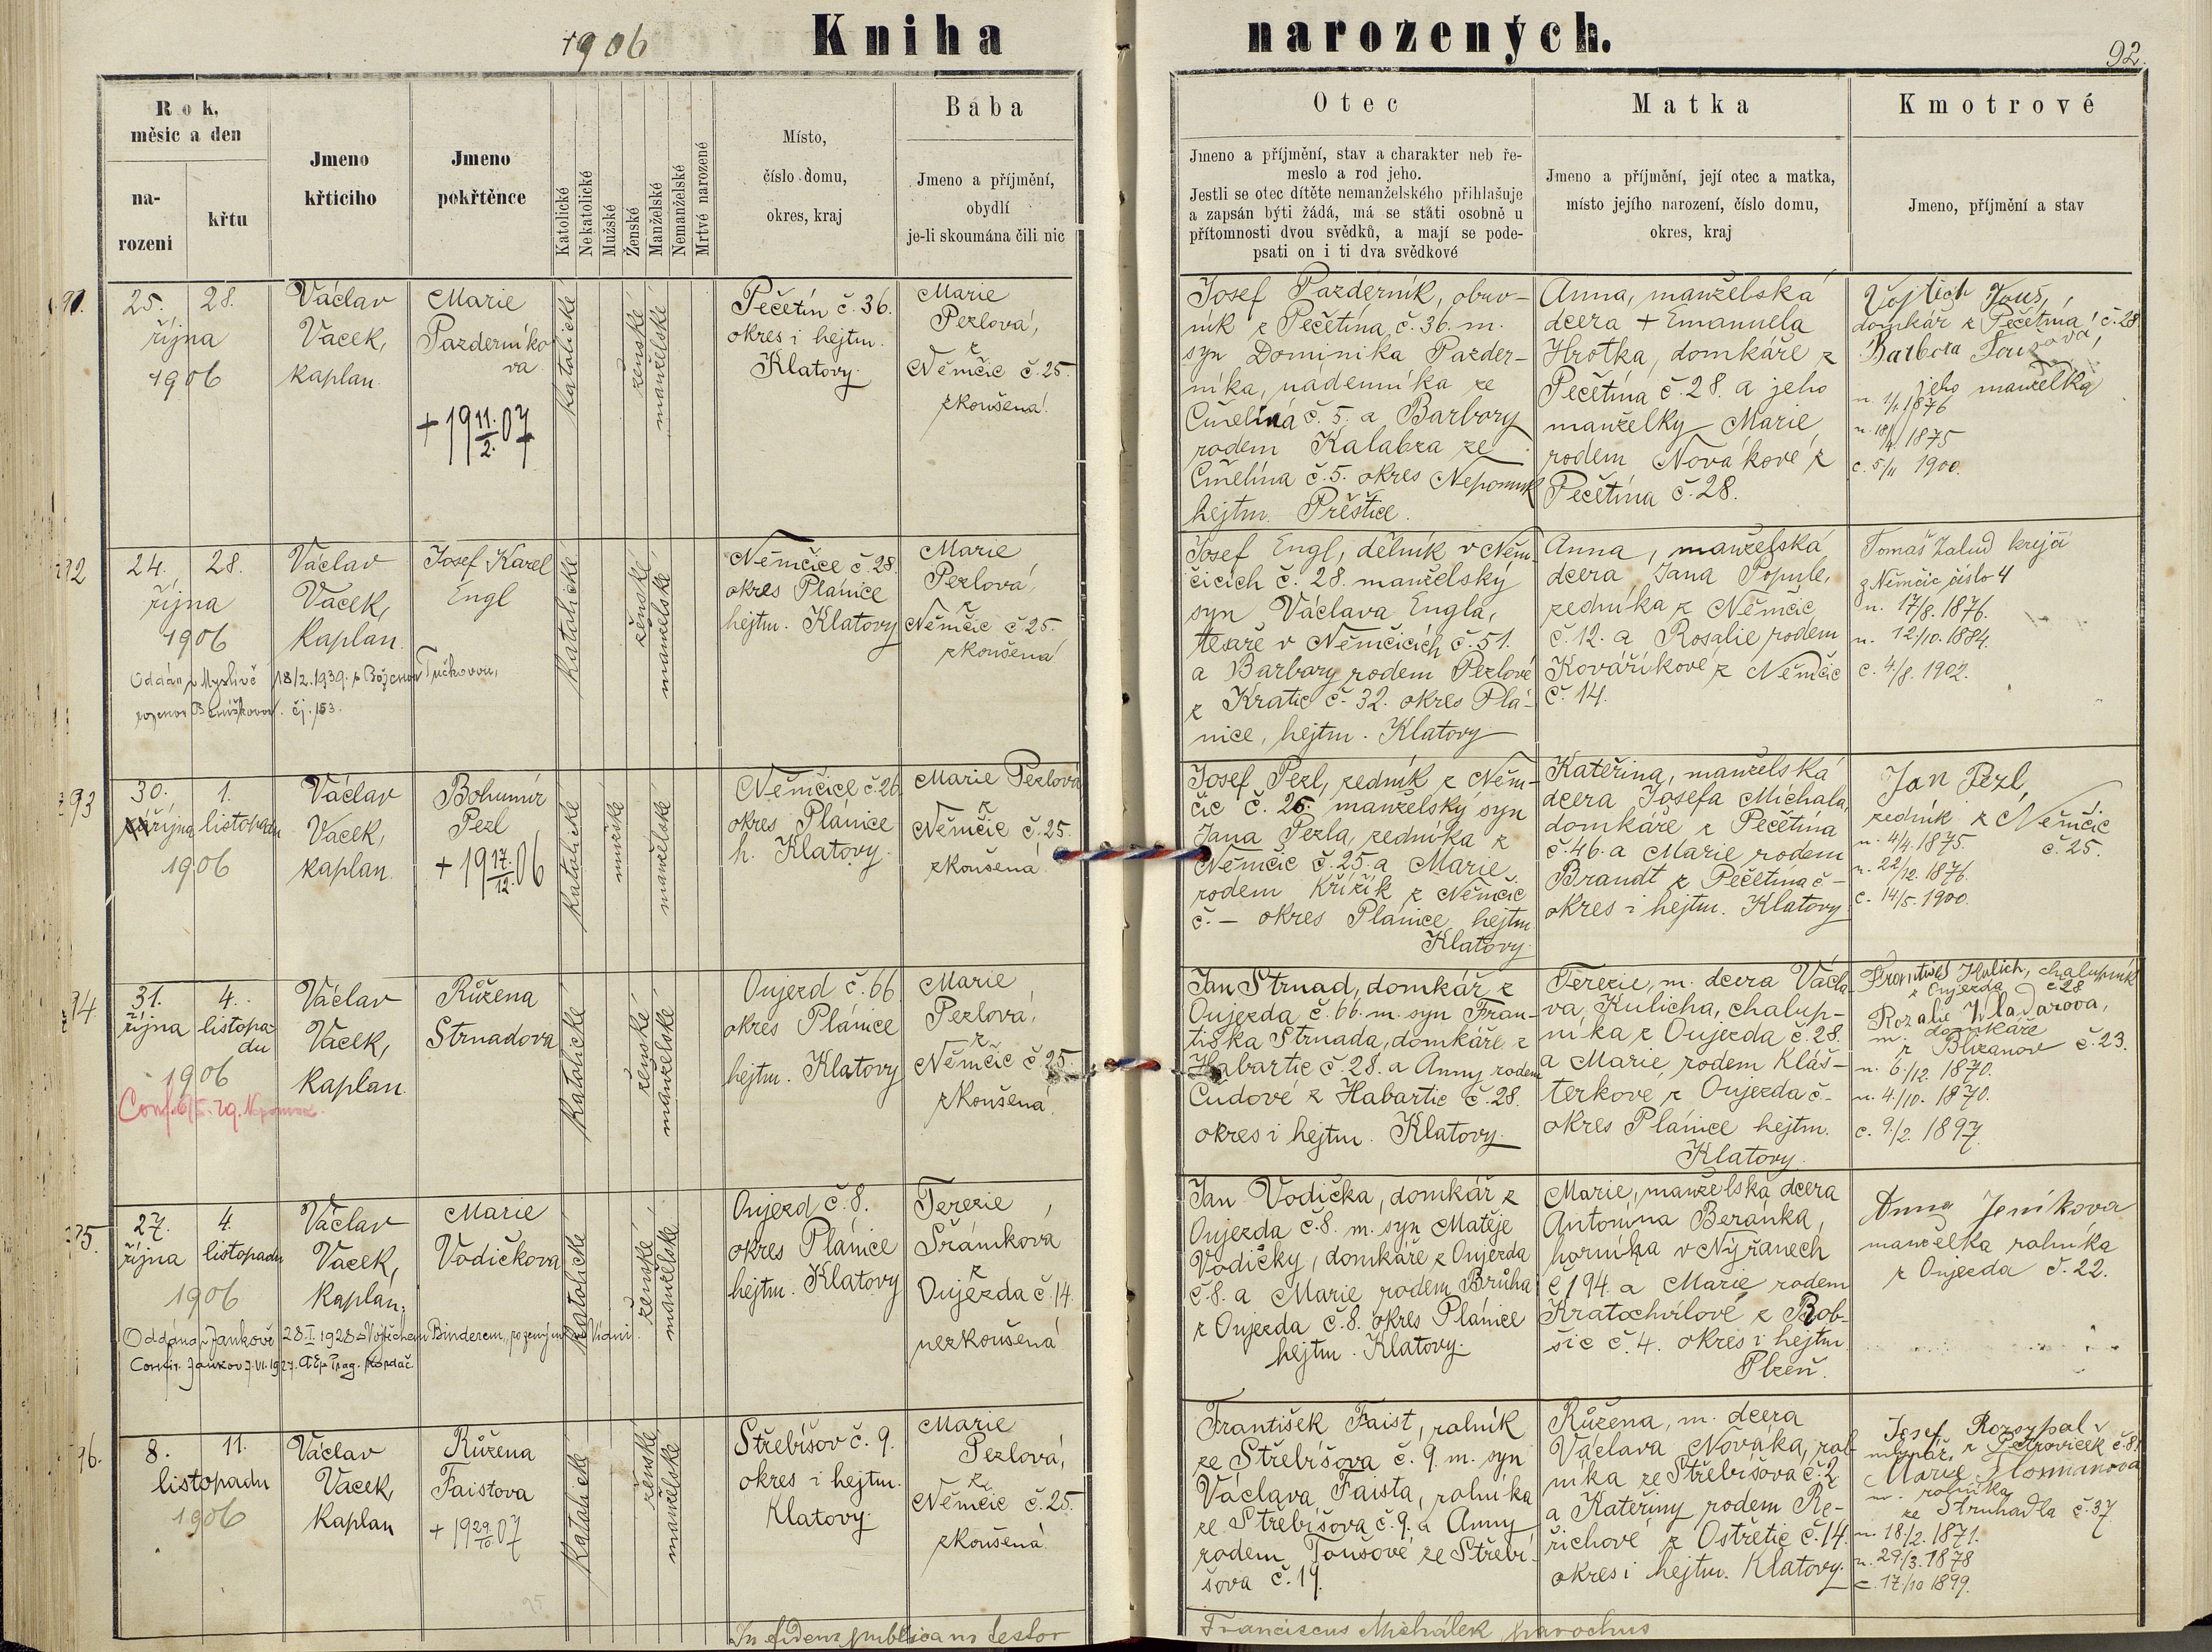 1906
Kniha narozených.
92.
Rok, měsíc a den
na-
rozeni
křtu
Jmeno
křticího
Jmeno
pokřtěnce
Katolické
Nekatolické
Mužské
Ženské
Manželské
Nemanželské
Mrtvé narozené
Místo,
číslo domu,
okres, kraj
Bába
Jmeno a příjmění,
obydlí
je-li skoumána čili nic
Otec
Jmeno a příjmění, stav a charakter neb ře-
meslo a rod jeho.
Jestli se otec dítěte nemanželského přihlašuje
a zapsán býti žádá, má se státi osobně u
přítomnosti dvou svědků, a mají se pode-
psati on i ti dva svědkové
Matka
Jmeno a příjmění, její otec a matka,
místo jejího narození, číslo domu,
okres, kraj
Kmotrové
Jmeno, příjmění a stav
91.
25.
28.
října
1906
Václav
Vacek,
kaplan.
Marie
Pazderníko
va
+ 19 11./2. 07
katolické
ženské
manželské
Pečetín č. 36.
okres i hejtm.
Klatovy.
Marie
Pezlová,
z
Němčic č. 25.
zkoušená.
Josef Pazderník, obuv-
ník z Pečetína č. 36. m.
syn Dominika Pazder-
níka, nádenníka ze
Čmelína č. 5. a Barbory
rodem Kalabza ze
Čmelína č. 5. okres Nepomuk
hejtm. Přeštice.
Anna, manželská
dcera + Emanuela
Hrotka, domkáře z
Pečetína č. 28. a jeho
manželky Marie
rodem Novákové z
Pečetína č. 28.
Vojtěch Touš,
domkář z Pečetína č. 28
Barbora Toušová,
jeho manželka
n. 1/1. 1876
n. 18/4. 1875
c. 5/11 1900.
92
24.
28.
října
1906
Václav
Vacek,
kaplan.
Josef Karel
Engl
katolické
ženské
manželské
Němčice č. 28.
okres Plánice
hejtm. Klatovy
Marie
Pezlová,
z
Němčic č. 25.
zkoušená
Oddán v Myslívě 18/2. 1939. s Boženou Tučkovou,
čj. 153.
Josef Engl, dělník v Něm-
čicích č. 28. manželský
syn Václava Engla,
tesaře v Němčicích č. 51.
a Barbory rodem Pezlové
z Kratic č. 32. okres Plá-
nice, hejtm. Klatovy
Anna, manželská
dcera Jana Popule,
zedníka z Němčic
č. 12. a Rosalie rodem
Kováříkové z Němčic
č. 14.
Tomáš Žalud krejčí
z Němčic číslo 4
n. 17/8. 1876.
n. 12/10. 1884.
c. 4/8. 1902.
93
30.
1.
října listopadu
1906
Václav
Vacek,
kaplan.
Bohumír
Pezl
+ 19 17./12. 06
katolické
mužské
manželské
Němčice č. 26
okres Plánice
h. Klatovy.
Marie Pezlová
z
Němčic č. 25.
zkoušená.
Josef Pezl, zedník z Něm-
čic č. 26. manželský syn
Jana Pezla, zedníka z
Němčic č. 25. a Marie
rodem Křížík z Němčic
č. – okres Plánice hejtm
Klatovy.
Kateřina, manželská
dcera Josefa Michala,
domkáře z Pečetína
č. 46. a Marie rodem
Brandt z Pečetína č –
okres i hejtm. Klatovy
Jan Pezl,
zedník z Němčic
č. 25.
n. 4/4. 1875.
n. 22/12. 1876.
c. 14/5. 1900.
94.
31.
4.
října listopa-
du
1906
Václav
Vacek,
kaplan.
Růžena
Strnadova
katolické
ženské
manželské
Oujezd č. 66
okres Plánice
hejtm. Klatovy
Marie
Pezlová,
z
Němčic č. 25.
zkoušená.
Jan Strnad, domkář z
Oujezda č. 66. m. syn Fran-
tiška Strnada, domkáře z
Habartic č. 28. a Anny rodem
Čudové z Habartic č. 28.
okres i hejtm. Klatovy.
Terezie, m. dcera Václa-
va Kulicha, chalup-
níka z Oujezda č. 28.
a Marie, rodem Kláš-
terkové z Oujezda č –
okres Plánice hejtm.
Klatovy.
František Kulich, chalupník
z Oujezda č 28
Rozalie Vladařova,
m. domkáře
z Blizanov č. 23.
n. 6/12. 1870.
n. 4/10. 1870.
c. 9/2. 1897.
95.
27.
4.
října listopadu
1906
Václav
Vacek,
kaplan.
Marie
Vodičkova
katolické
ženské
manželské
Oujezd č. 8.
okres Plánice
hejtm. Klatovy
Terezie
Šrámkova
z
Oujezda č. 14.
nezkoušená
Oddána v Jankově 28. I. 1928 s Vojtěchem Binderem, rozeným ve Vídni.
Confir. Jankov 7. VI. 1927. AEp Prag. Kordač.
Jan Vodička, domkář z
Oujezda č. 8. m. syn Matěje
Vodičky, domkáře z Oujezda
č. 8. a Marie rodem Brůha
z Oujezda č. 8. okres Plánice
hejtm. Klatovy.
Marie, manželská dcera
Antonína Beránka,
horníka v Nýřanech
č 194. a Marie, rodem
Kratochvilové z Bob-
šic č. 4. okres i hejtm.
Plzeň.
Anna Jeníkova
manželka rolníka
z Oujezda č. 22.
96.
8.
11.
listopadu
1906
Václav
Vacek,
kaplan
Růžena
Faistova
+ 19 29/10 07
katolické
ženské
manželské
Střebíšov č. 9.
okres i hejtm.
Klatovy.
Marie
Pezlová,
z
Němčic č. 25.
zkoušená.
František Faist, rolník
ze Střebíšova č. 9. m. syn
Václava Faista, rolníka
ze Střebíšova č. 9. a Anny
rodem Toušové ze Střebí-
šova č. 19.
Růžena, m. dcera
Václava Nováka, rol-
níka ze Střebíšova č. 2
a Kateřiny rodem Ře-
řichové z Ostřetic č. 14.
okres i hejtm. Klatovy.
Josef Rozsypal
mlynář z Petroviček č. 81
Marie
m. rolníka
ze Struhadla č. 37
n. 18/2. 1871.
n. 29/3. 1878
c. 17/10 1899.
In fidem publicam testor
Franciscus Michálek, parochus